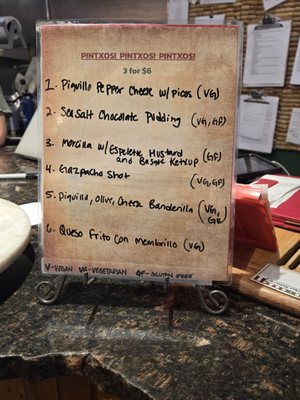 PINTXOS! PINTXOS! PINTXOS!
3 for $6
1. Piquillo Pepper Cheese w/ picos (VG)
2. Sea Salt Chocolate Pudding (VG, GF)
3. Morcilla w/ Espelette Mustard
and Basque Ketchup (GF)
4. Gazpacho Shot (VG, GF)
5. Piquillo, Olive, Cheese Banderilla (VG,
GF)
6. Queso Frito Con Membrillo (VG)
V-VEGAN VG-VEGETARIAN GF-GLUTEN FREE